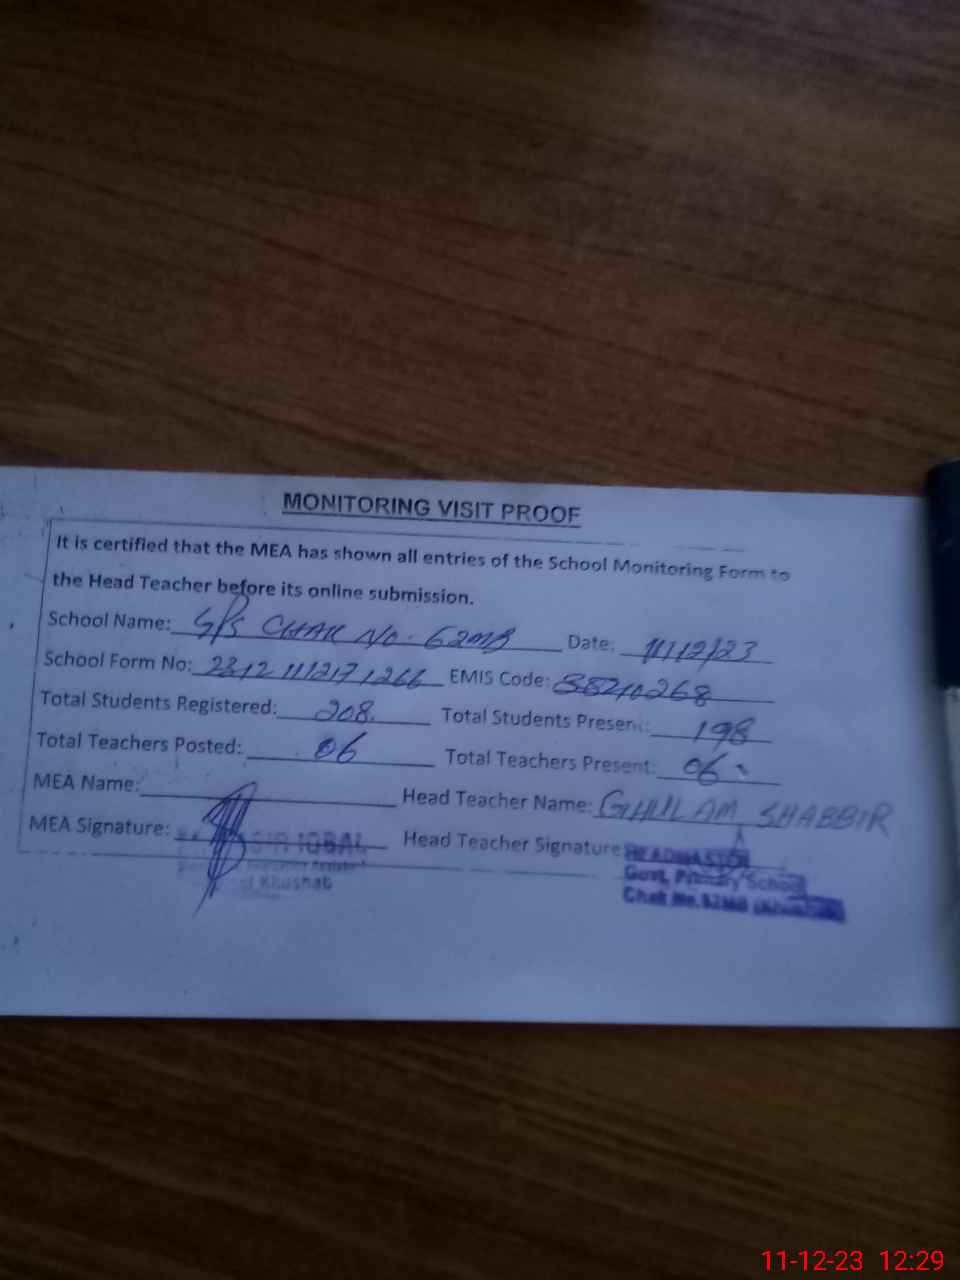 MONITORING VISIT PROOF
It is certified that the MEA has shown all entries of the School Monitoring Form to
the Head Teacher before its online submission.
School Name: GPS CHAK NO. 62MB Date: 11/12/23
School Form No: EMIS Code: 38210268
Total Students Registered: 208 Total Students Present: 198
Total Teachers Posted: 06 Total Teachers Present: 06
MEA Name: Head Teacher Name: GHULAM SHABBIR
MEA Signature: IQBAL Head Teacher Signature
Khushab
HEADMASTER
Govt. Primary School
Chak No. 62MB (Khushab)
11-12-23 12:29